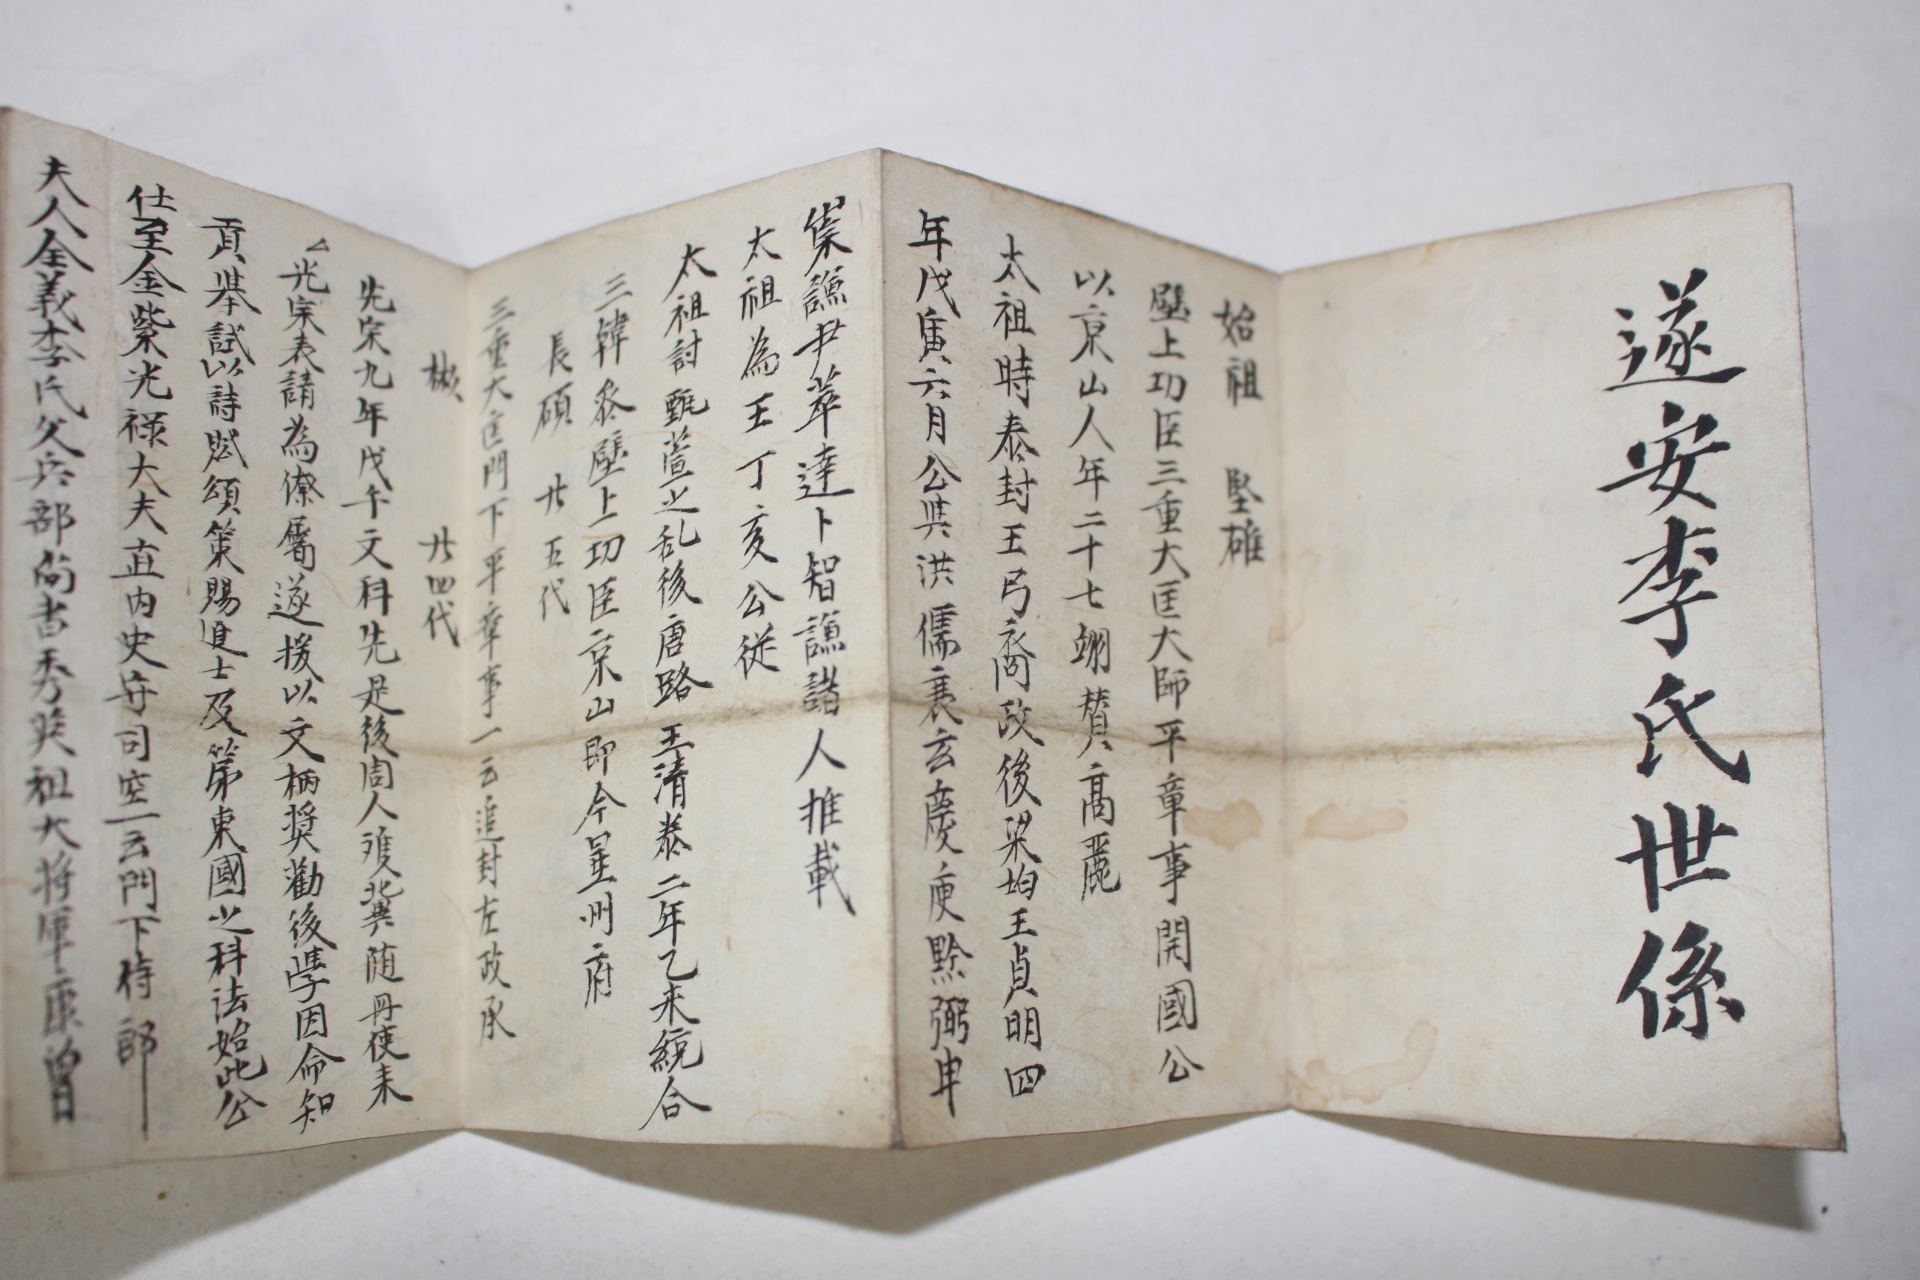 遂安李氏世係
始祖 堅雄
壁上功臣三重大匡大師平章事開國公
以京山人年二十七翊賛高麗
太祖時泰封王弓裔政後梁均王貞明四
年戊寅六月公與洪儒裵玄慶庾黔弼申
崇謙尹莘達卜智謙諸人推戴
太祖為王丁亥公従
太祖討甄萱之乱後唐路王清泰二年乙未統合
三韓叅壁上功臣京山即今星州府
長碩 廿五代
三重大匡門下平章事一云追封左政承
彬 廿四代
光宗九年戊午文科先是後周人雙兾随冊使来
光宗表請為僚屬遂援以文柄奨勸後學因命知
貢挙試以詩賦頌策賜進士及第東國之科法始此公
仕至金紫光禄大夫直内史守司空一云門下侍郎
夫人全義李氏父兵部尚書秀英祖大将軍康曽